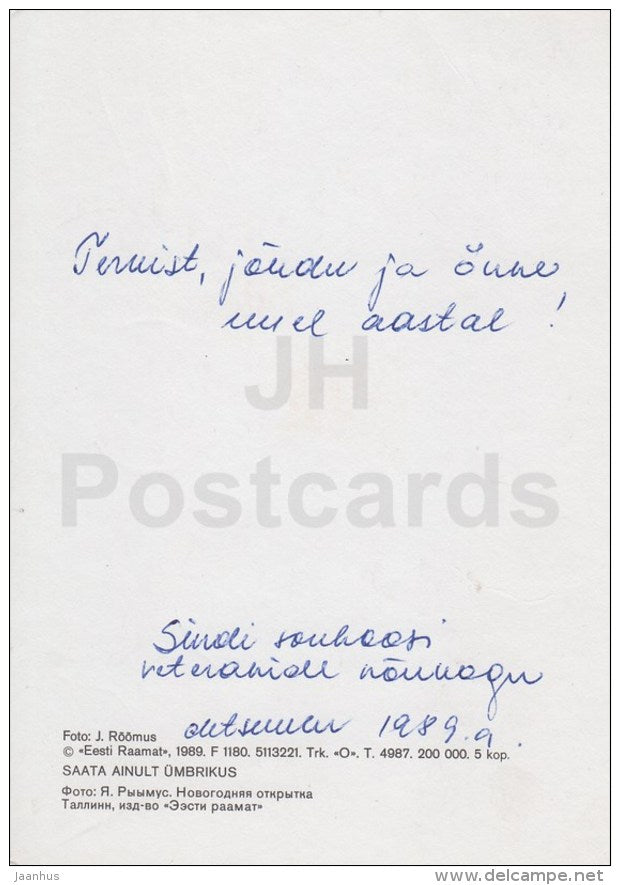 Tervist, jõudu ja õnne
uuel aastal!
JH
Postcards
Sindi sovhoosi
veteranide nõukogu
detsember 1989.a.
Foto: J. Rõõmus
© «Eesti Raamat», 1989. F 1180. 5113221. Trk. «O». T. 4987. 200 000. 5 kop.
SAATA AINULT ÜMBRIKUS
Фото: Я. Рыымус. Новогодняя открытка
Таллинн, изд-во «Ээсти раамат»
Jaanhus
www.delcampe.net